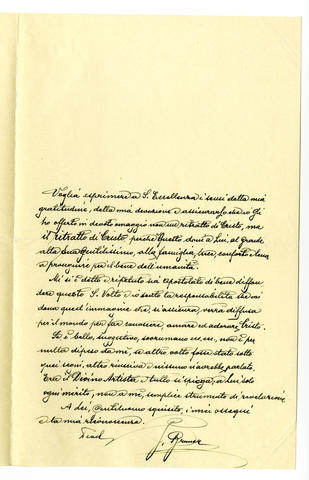 Voglia esprimere a S. Eccellenza i sensi della mia
gratitudine, della mia devozione e assicurarlo che io Gli
ho offerto in devoto omaggio non un ritratto di Cristo, ma
il ritratto di Cristo, perché Questo doni a Lui, al grande
alla Sua Gentilissimo, alla famiglia, luce conforto e lena
a proseguire per il bene dell'umanità.
Mi si è detto e ripetuto sia apostolato di bene diffon
dere questo S. Volto e io sento la responsabilità che mi
dona quest'immagine che, si assicura, verrà diffusa
per il mondo per far conoscere, amare ed adorare Cristo.
Se è bello, suggestivo, sovrumano non è per
multa difeso da me, se altro volto fosse stato sotto
quei segni, altro riusciva e nessuno n'avrebbe parlato.
Era il Divino Artista e tutto si spiega, a Lui solo
ogni merito, non a me, semplice strumento di rivelazione.
A Lei, Gentiluomo squisito, i miei ossequi
e la mia riconoscenza.
G. Bruner